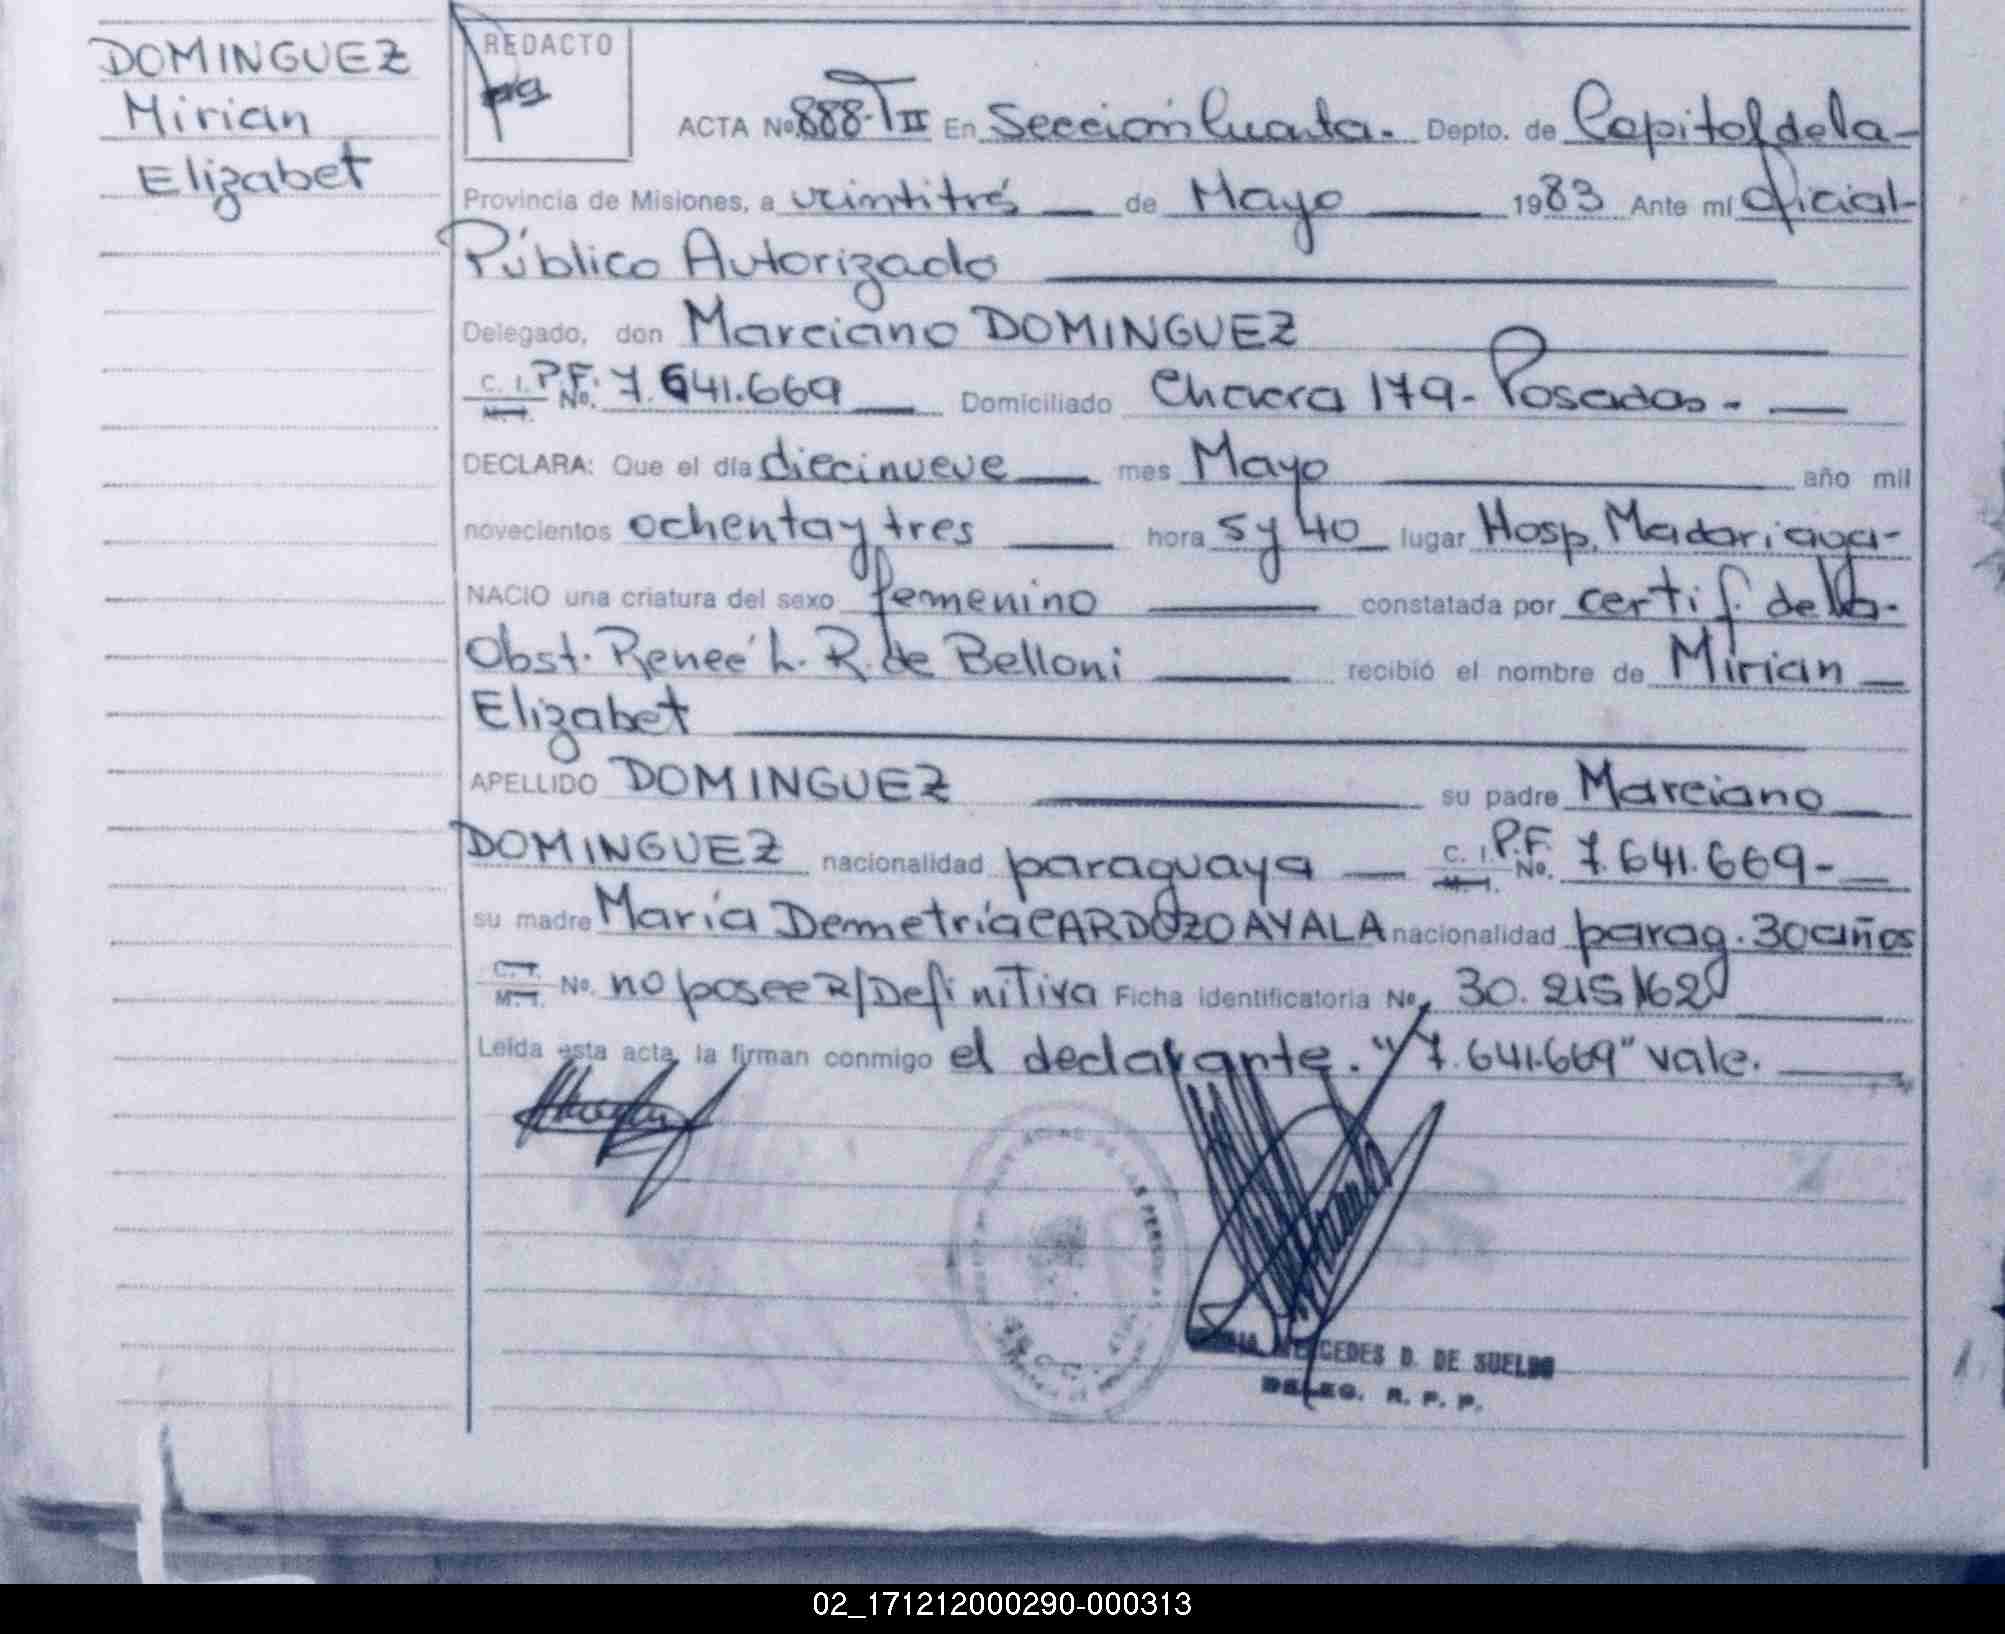 DOMINGUEZ
Mirian
Elizabet
REDACTO
ACTA No. 888-TII En Sección Cuarta. Depto. de Capital de la
Provincia de Misiones, a veintitrés de Mayo 1983 Ante mí Oficial
Público Autorizado
Delegado, don Marciano DOMINGUEZ
C. I. P.F. No. 7.641.669 Domiciliado Chacra 179 - Posadas -
M. I.
DECLARA: Que el día diecinueve mes Mayo año mil
novecientos ochenta y tres hora 5 y 40 lugar Hosp. Madariaga -
NACIO una criatura del sexo femenino constatada por certif. de la
Obst. Reneé L. R. de Belloni recibió el nombre de Mirian
Elizabet
APELLIDO DOMINGUEZ su padre Marciano
DOMINGUEZ nacionalidad paraguaya C. I. P.F. No. 7.641.669 -
M. I.
su madre María Demetria CARDOZO AYALA nacionalidad parag. 30 años
C. I. M. I. No. no posee R/Definitiva Ficha identificatoria No. 30.215/62
Leída esta acta, la firman conmigo el declarante. "7.641.669" vale.
MERCEDES D. DE SUELDO
DELEG. R. P. P.
02_171212000290-000313